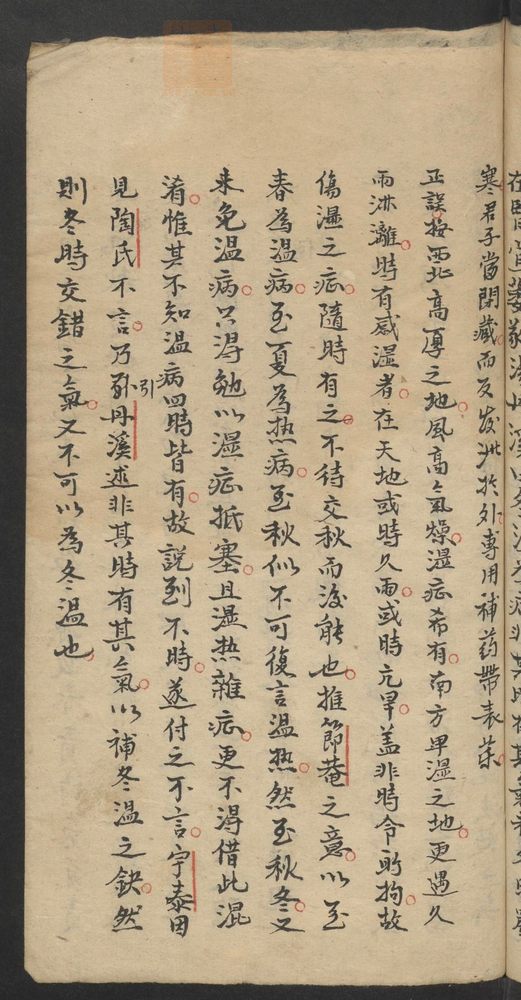 寒君子當閉藏而反發泄於外專用補药帶表药
正誤按西北高厚之地風高氣燥濕症希有南方卑濕之地更遇久
雨淋漓時有感濕者在天地或時久雨或時亢旱盖非時令所拘故
傷濕之症隨時有之不待交秋而後能也推節菴之意以至
春為温病至夏為热病至秋似不可復言温热然至秋冬又
来免温病只得勉以濕症抵塞且濕热雜症更不得借此混
淆惟其不知温病四時皆有故説到冬時遂付之不言宇泰因
見陶氏不言乃引丹溪述非其時有其氣以補冬温之缺然
則冬時交錯之氣又不可以為冬温也